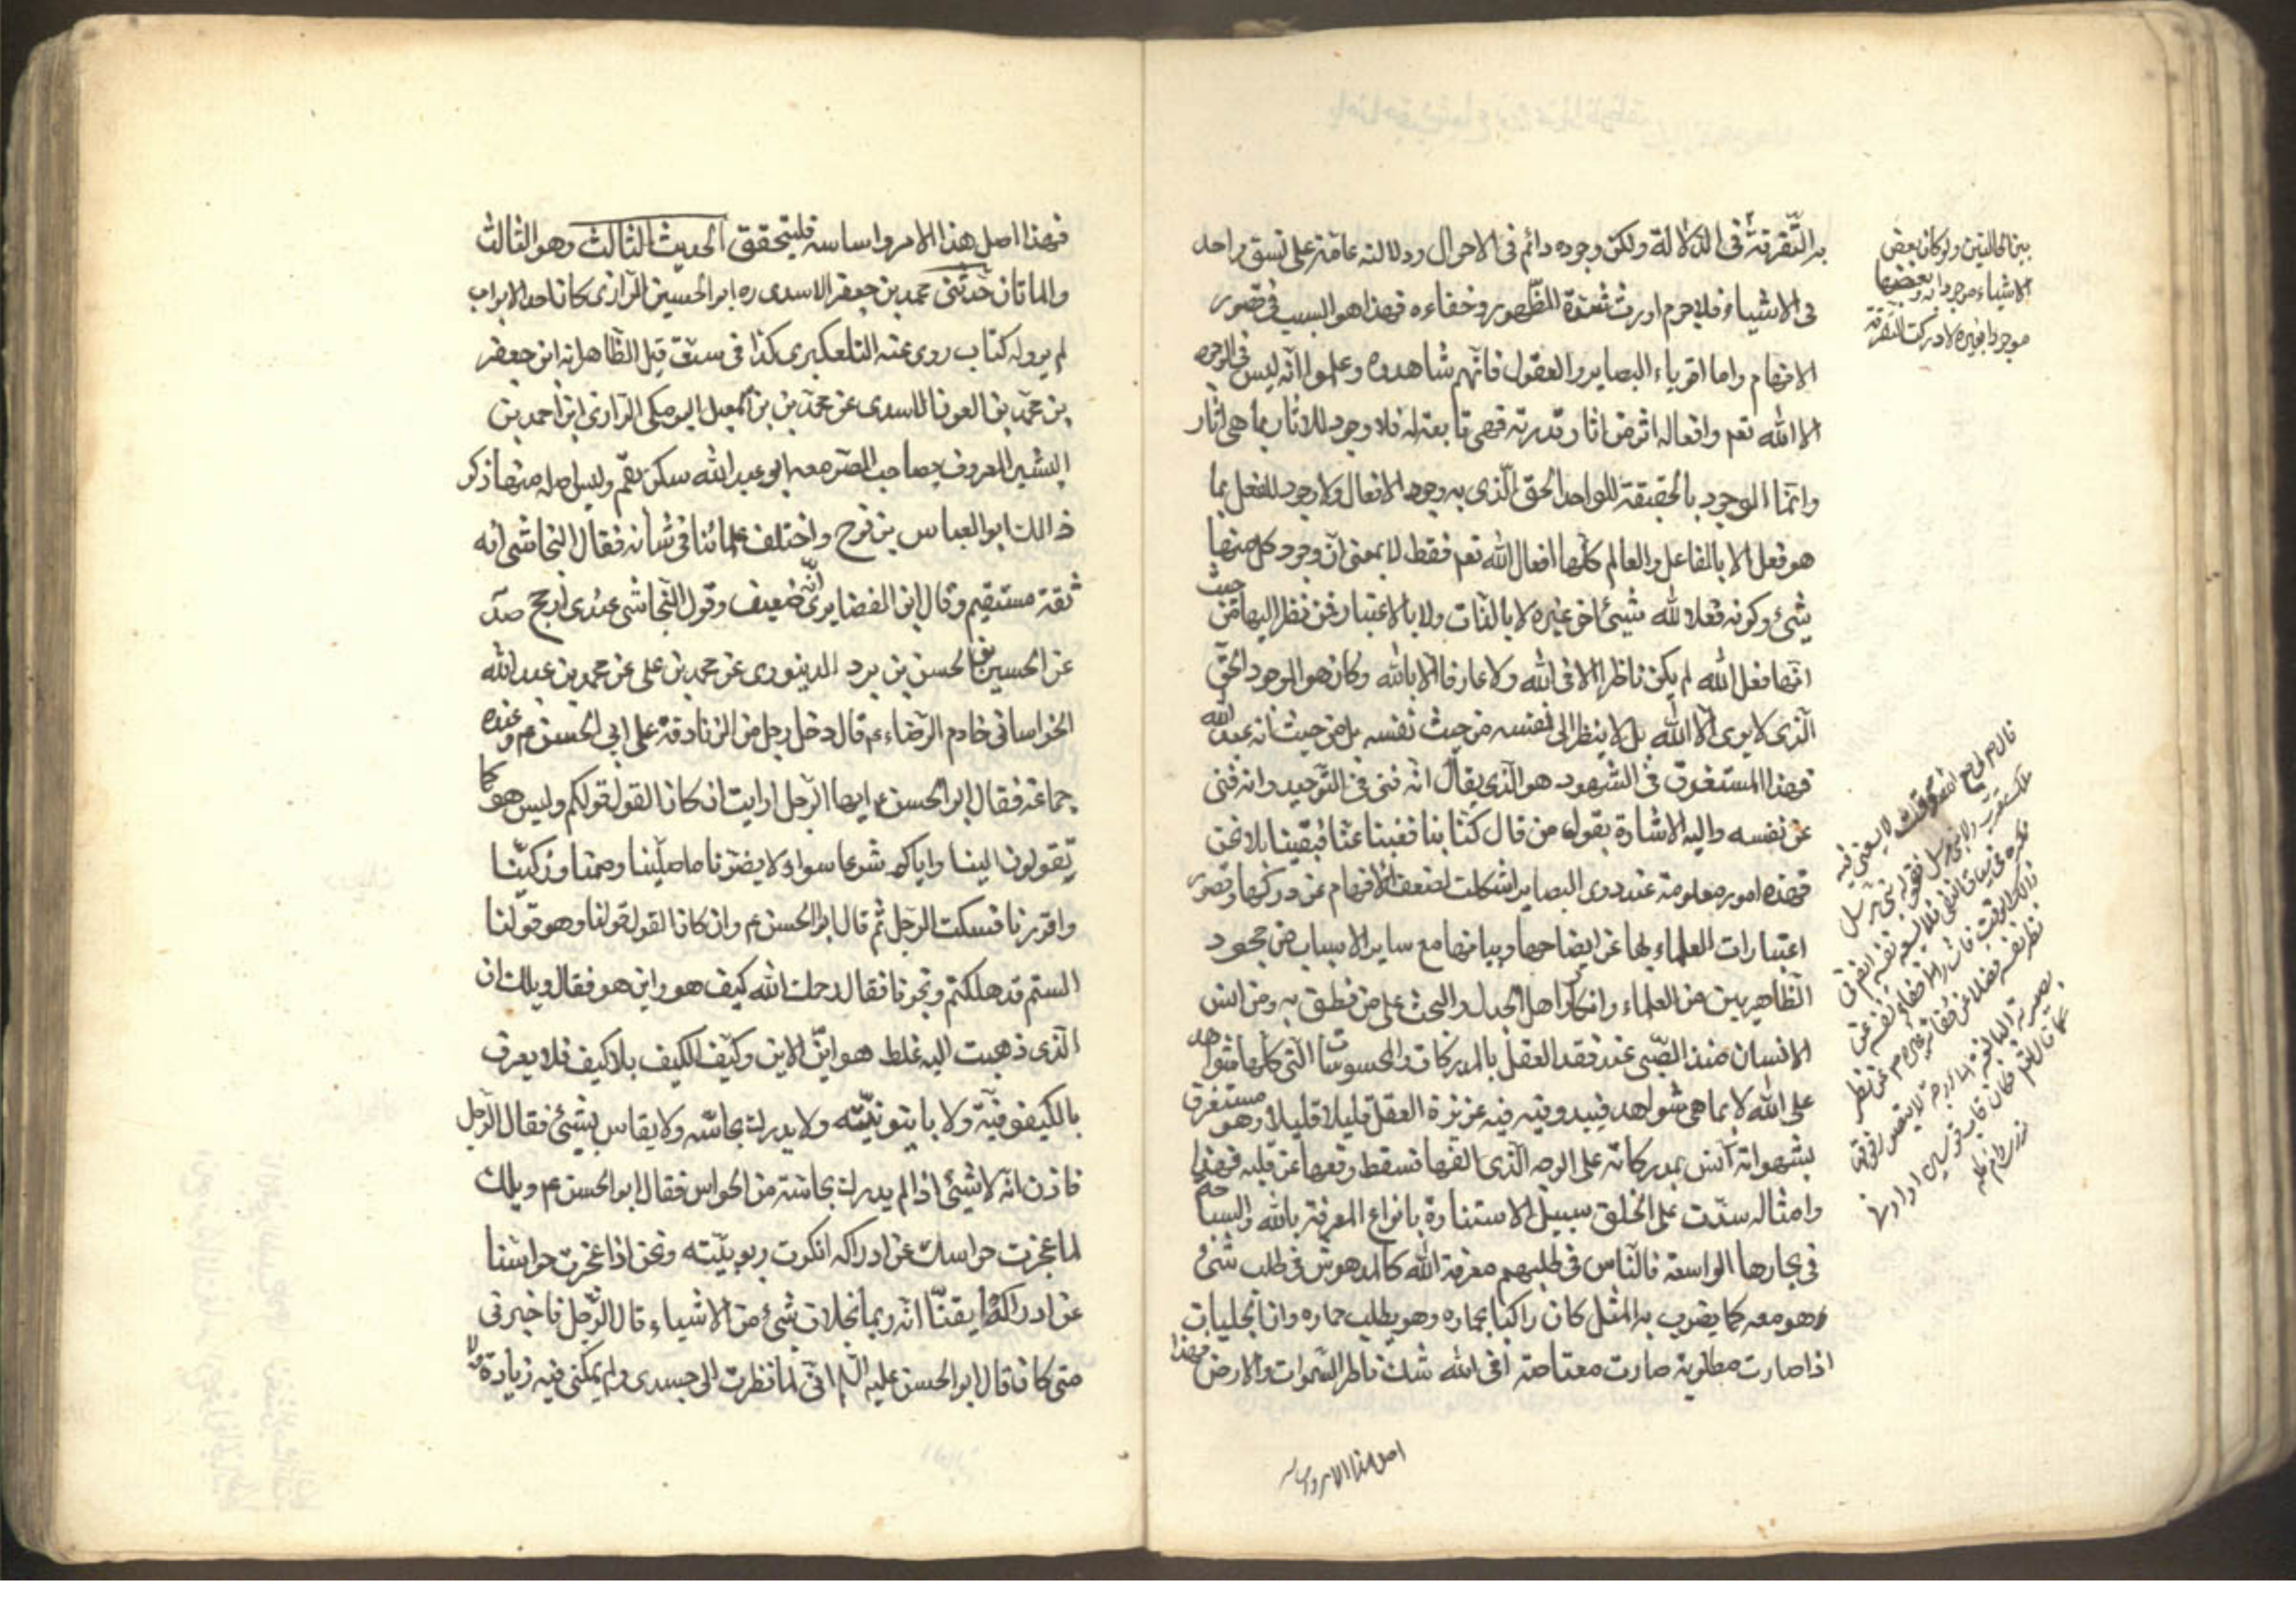 به التفرقة فى الدلالة ولكن وجوده دائم فى الاحوال ودلالته عامة على نسق واحد
فى الاشياء فلاجرم اورث شدة الظهور وخفاءه فهذا هو السبب فى قصور
الافهام واما اقوياء البصاير والعقول فانهم شاهدوه وعلموا انه ليس فى الوجود
الا الله تعم وافعاله اثر من اثار قدرته فهى تابعة له فلا وجود للاثار بما هى اثار
وانما الموجود بالحقيقة للواحد الحق الذى به وجود الافعال ولا وجود للفعل بما
هو فعل الا بالفاعل والعالم كلها افعال الله تعم فقط لا بمعنى ان وجود كل منها
شيئ وكونه فعلا لله شيئ اخر غيره لا بالذات ولا بالاعتبار فمن نظر اليها من حيث
انها فعل الله لم يكن ناظرا الا فى الله ولا عارفا الا بالله وكان هو الموحد الحق
الذى لا يرى الا الله بل لا ينظر الى نفسه من حيث نفسه بل من حيث انه عبد الله
فهذا المستغرق فى الشهود هو الذى يقال انه فنى فى التوحيد وانه فنى
عن نفسه واليه الاشارة بقوله من قال كنا بنا ففنينا عنا فبقينا بلا نحن
فهذه امور معلومة عند ذوى البصاير اشكلت لضعف الافهام عن دركها وقصور
اعتبارات العلماء بها عن ايضاحها وبيانها مع ساير الاسباب من جحود
الظاهريين من العلماء وانكار اهل الجدل والبحث على من نطق به ومن انس
الانسان منذ الصبى عند فقد العقل بالمدركات والمحسوسات التى كلها شواهد
على الله لا بما هى شواهد فيبدو فيه غريزة العقل قليلا قليلا وهو مستغرق
بشهواته آنس بمدركاته على الوجه الذى الفها فسقط وقعها عن قلبه فهذا
وامثاله سدت على الخلق سبيل الاستنارة بانواع المعرفة بالله والسباحة
فى بحارها الواسعة فالناس فى طلبهم معرفة الله كالمدهوش فى طلب شئ
وهو معه كما يضرب به المثل كان راكبا بحماره وهو يطلب حماره وان الجليات
اذا صارت مطلوبة صارت معتاصة افى الله شك فاطر السموات والارض فهذا
اصل هذا الامر واساسه
بين الحالتين ولو كان بعض
الاشياء موجودا به وبعضها
موجودا بغيره لادركت التفرقة
فهذا اصل هذا الامر واساسه فليتحقق الحديث الثالث وهو الثالث
والماتان حدثنى محمد بن جعفر الاسدى ره ابو الحسين الرازى كان احد الابواب
لم يرو له كتاب روى عنه التلعكبرى كذا فى ست ق قيل الظاهر انه ابن جعفر
بن محمد بن العون الاسدى عن محمد بن اسمعيل البرمكى الرازى ابن احمد بن
البشير المعروف بصاحب الصومعه ابو عبد الله سكن بقم وليس اصله منها ذكر
ذالك ابو العباس بن نوح واختلف علمائنا فى شانه فقال النجاشى انه
ثقة مستقيم وقال ابن الغضايرى انه ضعيف وقول النجاشى عندى ارجح صه
عن الحسين بن الحسن بن برد الدينورى عن محمد بن على عن محمد بن عبد الله
الخراسانى خادم الرضاء ع قال دخل رجل من الزنادقة على ابى الحسن ع وعنده
جماعة فقال ابو الحسن ع ايها الرجل ارايت ان كان القول قولكم وليس هو كما
تقولون السنا واياكم شرعا سواء لا يضرنا ما صلينا وصمنا وزكينا
واقررنا فسكت الرجل ثم قال ابو الحسن ع وان كان القول قولنا وهو قولنا
الستم قد هلكتم ونجونا فقال رحمك الله كيف هو واين هو فقال ويلك ان
الذى ذهبت اليه غلط هو اين الاين وكيف الكيف بلا كيف فلا يعرف
بالكيفوفية ولا باينونية ولا يدرك بحاسة ولا يقاس بشيئ فقال الرجل
فاذن انه لا شيئ اذا لم يدرك بحاسة من الحواس فقال ابو الحسن ع ويلك
لما عجزت حواسك عن ادراكه انكرت ربوبيته ونحن اذا عجزت حواسنا
عن ادراكه ايقنا انه ربنا بخلاف شئ من الاشياء قال الرجل فاخبرنى
متى كان قال ابو الحسن عليه السلم انى لما نظرت الى جسدى ولم يمكنى فيه زيادة ولا